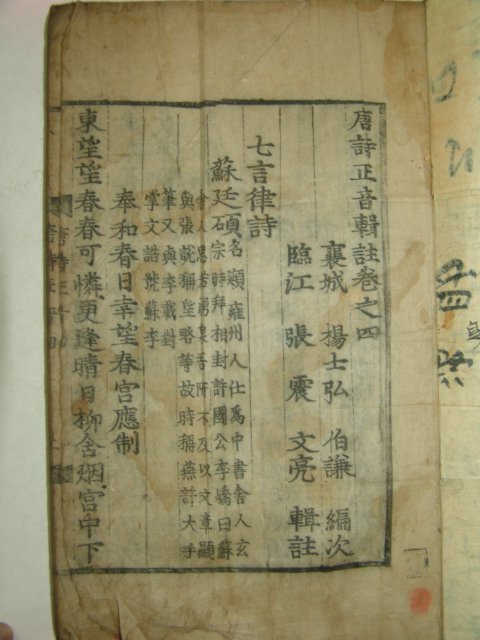 唐詩正音輯註卷之四
襄城 楊士弘 伯謙 編次
臨江 張震 文亮 輯註
七言律詩
蘇廷碩名頲雍州人仕爲中書舍人玄
宗時拜相封許國公李嶠曰蘇
舍人思若湧泉吾所不及以文章顯
與張說稱望略等故時稱燕許大手
筆又與李載對
掌文誥號蘇李
奉和春日幸望春宮應制
東望望春春可憐更逢晴日柳含烟宮中下